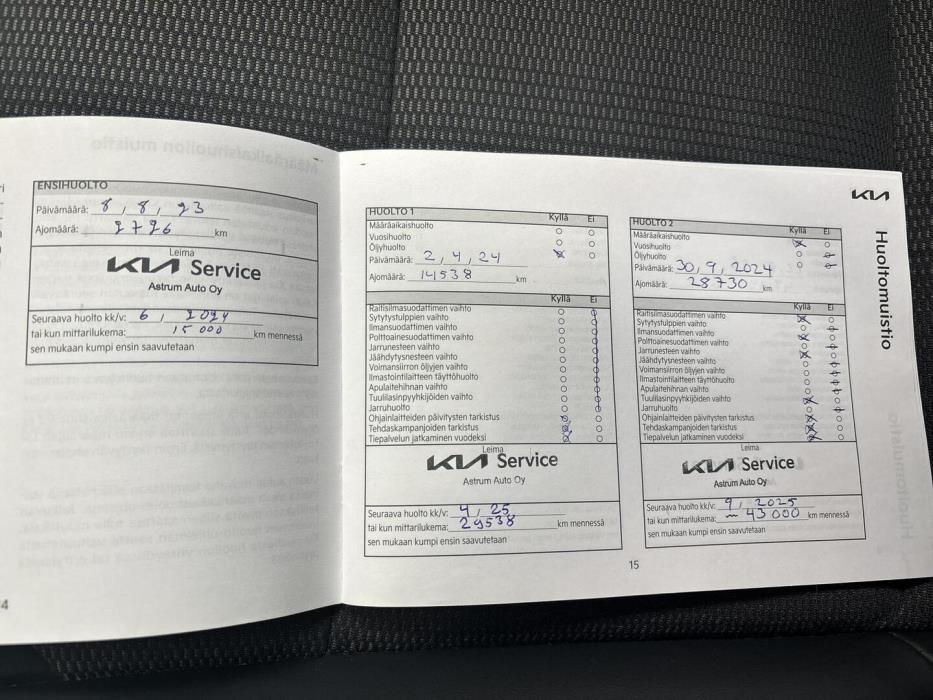 ENSIHUOLTO
Päivämäärä: 8, 8, 23
Ajomäärä: 2726 km
Leima
KIA Service
Astrum Auto Oy
Seuraava huolto kk/v: 6, 2024
tai kun mittarilukema: 15 000 km mennessä
sen mukaan kumpi ensin saavutetaan
KIA
Huoltomuistio
HUOLTO 1 Kyllä Ei
Määräaikaishuolto
Vuosihuolto
Öljyhuolto
Päivämäärä: 2, 4, 24
Ajomäärä: 14538 km
Kyllä Ei
Raitisilmasuodattimen vaihto
Sytytystulppien vaihto
Ilmansuodattimen vaihto
Polttoainesuodattimen vaihto
Jarrunesteen vaihto
Jäähdytysnesteen vaihto
Voimansiirron öljyjen vaihto
Ilmastointilaitteen täyttöhuolto
Apulaitehihnan vaihto
Tuulilasinpyyhkijöiden vaihto
Jarruhuolto
Ohjainlaitteiden päivitysten tarkistus
Tehdaskampanjoiden tarkistus
Tiepalvelun jatkaminen vuodeksi
Leima
KIA Service
Astrum Auto Oy
Seuraava huolto kk/v: 4, 25
tai kun mittarilukema: 29538 km mennessä
sen mukaan kumpi ensin saavutetaan
HUOLTO 2 Kyllä Ei
Määräaikaishuolto
Vuosihuolto
Öljyhuolto
Päivämäärä: 30, 9, 2024
Ajomäärä: 28730 km
Kyllä Ei
Raitisilmasuodattimen vaihto
Sytytystulppien vaihto
Ilmansuodattimen vaihto
Polttoainesuodattimen vaihto
Jarrunesteen vaihto
Jäähdytysnesteen vaihto
Voimansiirron öljyjen vaihto
Ilmastointilaitteen täyttöhuolto
Apulaitehihnan vaihto
Tuulilasinpyyhkijöiden vaihto
Jarruhuolto
Ohjainlaitteiden päivitysten tarkistus
Tehdaskampanjoiden tarkistus
Tiepalvelun jatkaminen vuodeksi
Leima
KIA Service
Astrum Auto Oy
Seuraava huolto kk/v: 9, 2025
tai kun mittarilukema: ~ 43000 km mennessä
sen mukaan kumpi ensin saavutetaan
15